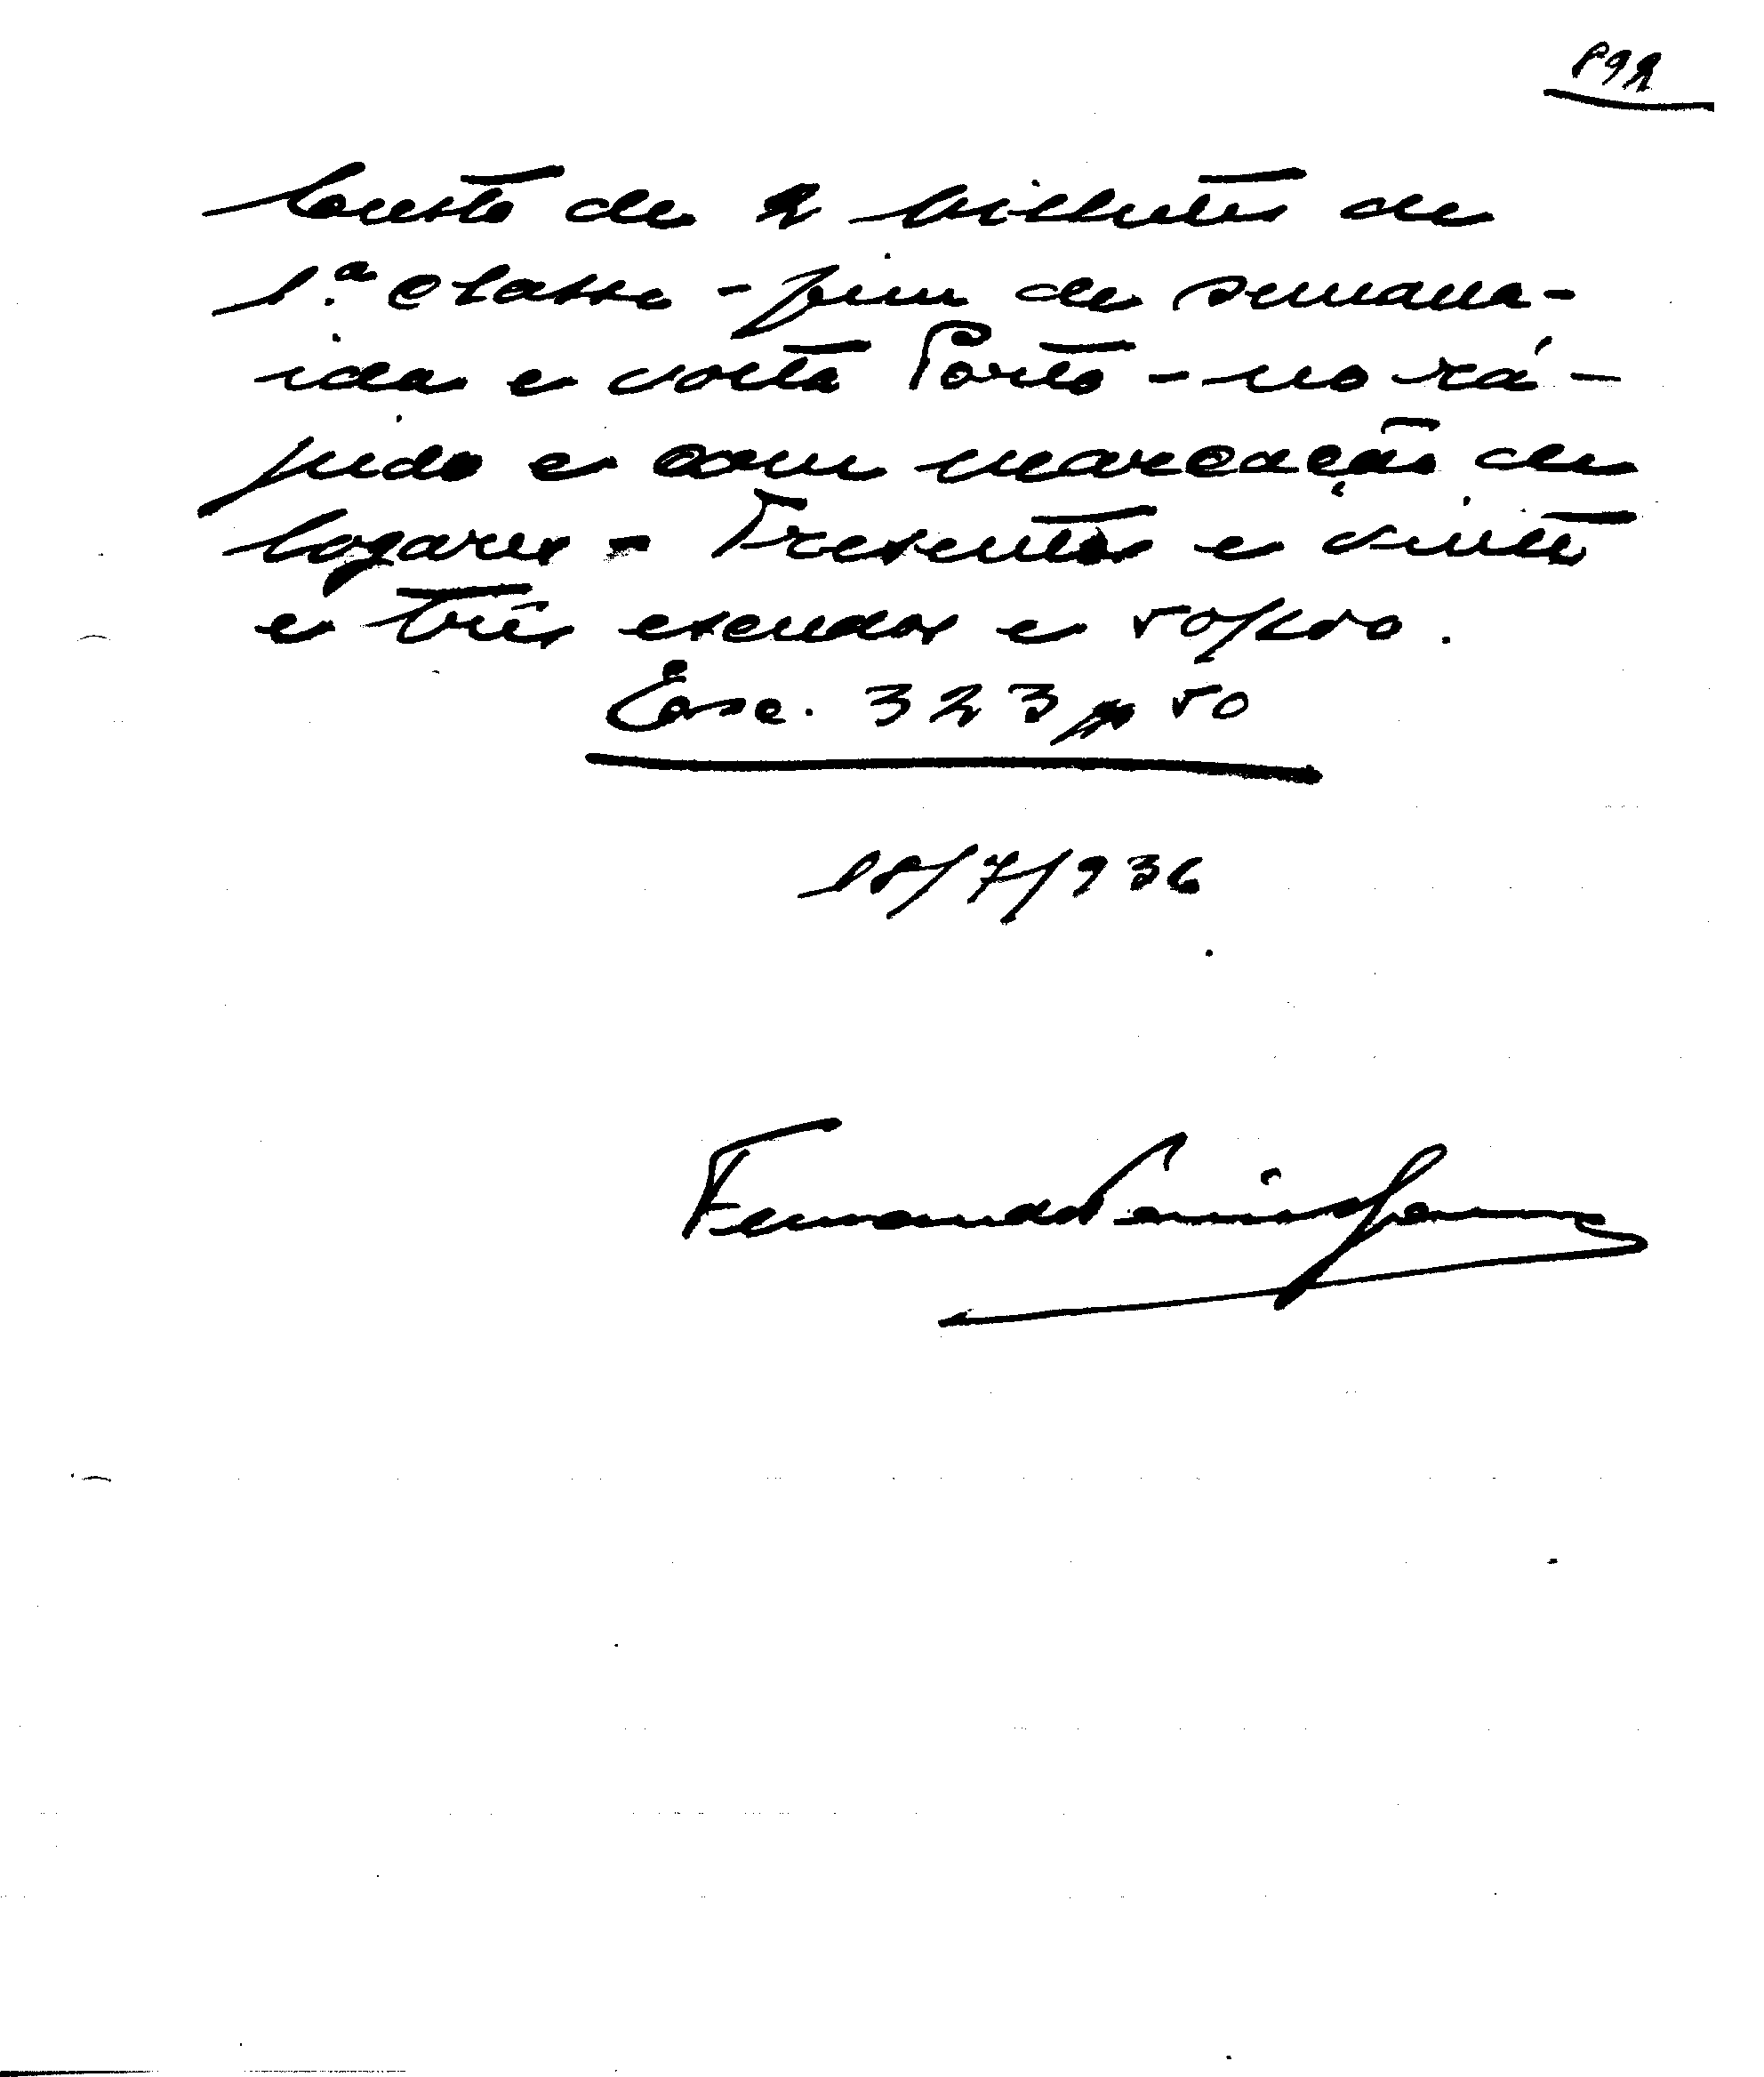 192
Custo de 2 bilhetes de
1.ª classe - fim de semana -
ida e volta Porto - no rá-
pido e com marcação de
logares - Tresentos e vinte
e três escudos e 50/100.
Esc. 323$50
18/7/936
Fernando